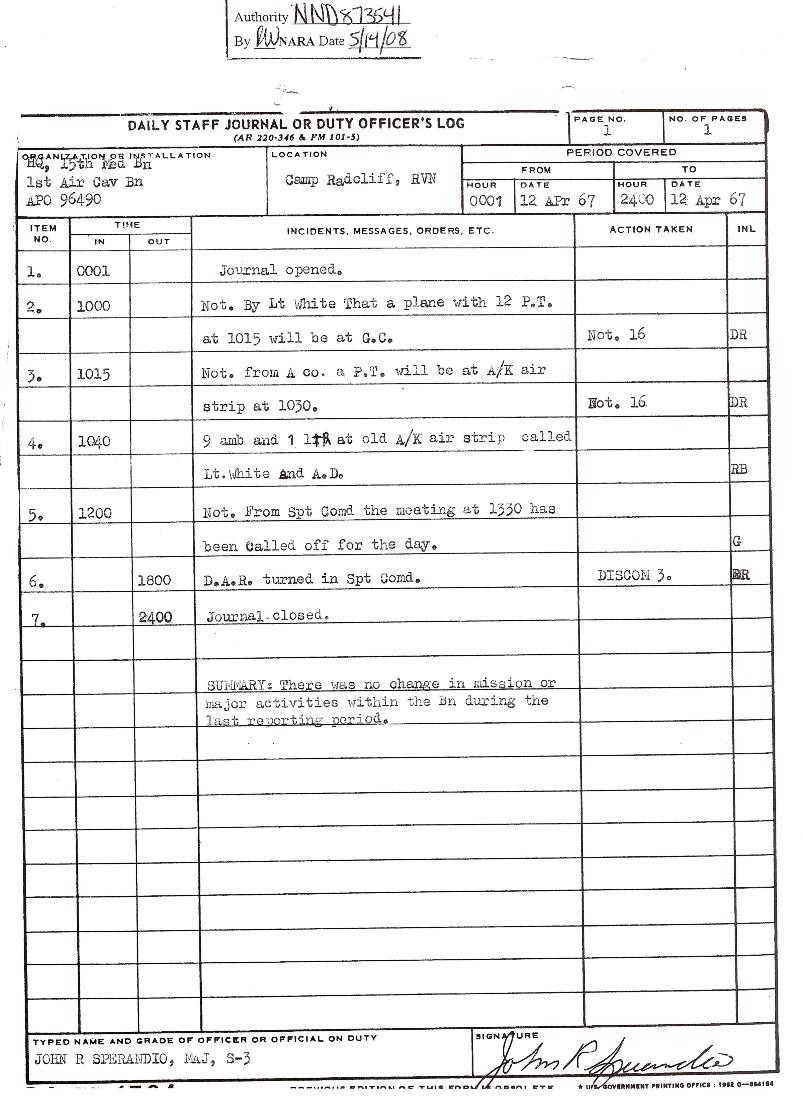 Authority NND873541
By RW NARA Date 5/14/08
DAILY STAFF JOURNAL OR DUTY OFFICER'S LOG
(AR 220-346 & FM 101-5)
PAGE NO.
1
NO. OF PAGES
1
ORGANIZATION OR INSTALLATION
HQ, 15th Med Bn
1st Air Cav Bn
APO 96490
LOCATION
Camp Radcliff, RVN
PERIOD COVERED
FROM TO
HOUR DATE HOUR DATE
0001 12 APr 67 2400 12 Apr 67
ITEM NO. TIME INCIDENTS, MESSAGES, ORDERS, ETC. ACTION TAKEN INL
IN OUT
1. 0001 Journal opened.
2. 1000 Not. By Lt White That a plane with 12 P.T.
at 1015 will be at G.C. Not. 16 DR
3. 1015 Not. from A co. a P.T. will be at A/K air
strip at 1030. Not. 16 DR
4. 1040 9 amb and 1 at old A/K air strip called
Lt.White And A.D. RB
5. 1200 Not. From Spt Comd the meating at 1330 has
been Called off for the day. G
6. 1800 D.A.R. turned in Spt Comd. DISCOM 3. DR
7. 2400 Journal closed.
SUMMARY: There was no change in mission or
major activities within the Bn during the
last reporting period.
TYPED NAME AND GRADE OF OFFICER OR OFFICIAL ON DUTY
JOHN R SPERANDIO, MAJ, S-3
SIGNATURE
John R Sperandio
PREVIOUS EDITION OF THIS FORM IS OBSOLETE
★ U.S. GOVERNMENT PRINTING OFFICE : 1962 O—664184